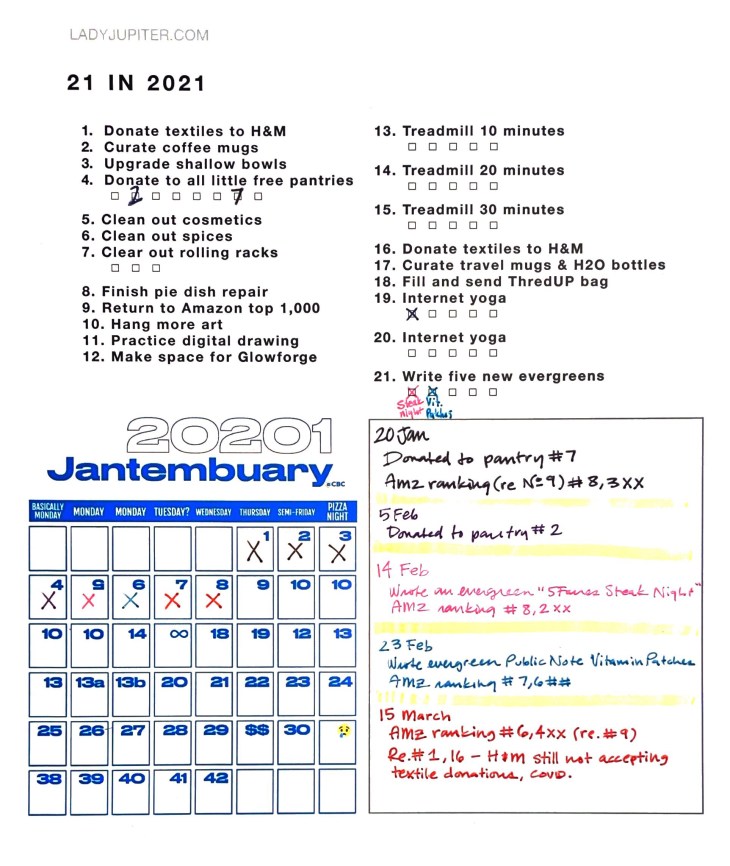 LADYJUPITER.COM
21 IN 2021
1. Donate textiles to H&M
2. Curate coffee mugs
3. Upgrade shallow bowls
4. Donate to all little free pantries
2 7
5. Clean out cosmetics
6. Clean out spices
7. Clear out rolling racks
8. Finish pie dish repair
9. Return to Amazon top 1,000
10. Hang more art
11. Practice digital drawing
12. Make space for Glowforge
13. Treadmill 10 minutes
14. Treadmill 20 minutes
15. Treadmill 30 minutes
16. Donate textiles to H&M
17. Curate travel mugs & H2O bottles
18. Fill and send ThredUP bag
19. Internet yoga
20. Internet yoga
21. Write five new evergreens
Steak Vit.
Night Patches
20201
Jantembuary
CBC
BASICALLY MONDAY MONDAY MONDAY TUESDAY? WEDNESDAY THURSDAY SEMI-FRIDAY PIZZA NIGHT
1 2 3
4 9 6 7 8 9 10 10
10 10 14 ∞ 18 19 12 13
13 13a 13b 20 21 22 23 24
25 26 27 28 29 $$ 30 😢
38 39 40 41 42
20 Jan
Donated to pantry #7
Amz ranking (re Nº 9) # 8,3XX
5 Feb
Donated to pantry # 2
14 Feb
Wrote an evergreen "5 Fares Steak Night"
AMZ ranking # 8,2xx
23 Feb
Wrote evergreen Public Note Vitamin Patches
AMZ ranking # 7,6##
15 March
AMZ ranking # 6,4xx (re. #9)
Re. # 1, 16 – H&M still not accepting
textile donations, COVID.